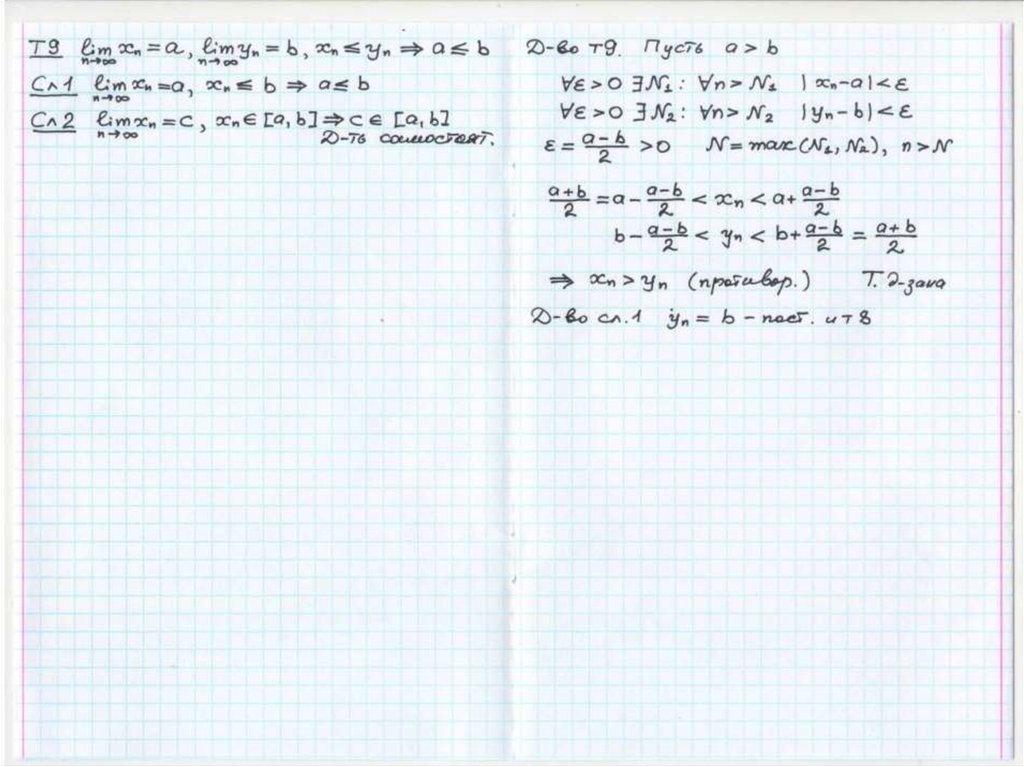 Т9 lim xₙ = a, lim yₙ = b, xₙ ≤ yₙ ⇒ a ≤ b
n→∞ n→∞
Сл1 lim xₙ = a, xₙ ≤ b ⇒ a ≤ b
n→∞
Сл2 lim xₙ = c, xₙ ∈ [a, b] ⇒ c ∈ [a, b]
n→∞ Д-ть самостоят.
Д-во т9. Пусть a > b
∀ε > 0 ∃N₁: ∀n > N₁ |xₙ - a| < ε
∀ε > 0 ∃N₂: ∀n > N₂ |yₙ - b| < ε
ε = (a-b)/2 > 0 N = max(N₁, N₂), n > N
(a+b)/2 = a - (a-b)/2 < xₙ < a + (a-b)/2
b - (a-b)/2 < yₙ < b + (a-b)/2 = (a+b)/2
⇒ xₙ > yₙ (противор.) Т. д-зана
Д-во сл.1 yₙ = b - пост. и т 8